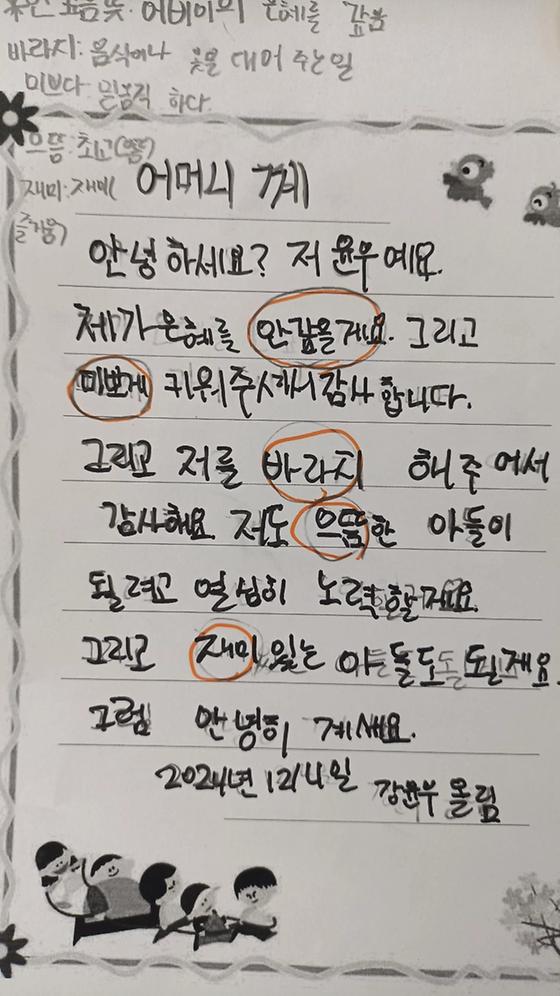 어버이의 은혜를 갚음
바라지: 음식이나 옷을 대어 주는 일
미쁘다: 믿음직 하다
으뜸: 최고
재미: 재미(
즐거움)
어머니 께
안녕 하세요? 저 윤우예요.
제가 은혜를 안갚을게요. 그리고
미쁘게 키워주셔서 감사 합니다.
그리고 저를 바라지 해주어서
감사해요. 저도 으뜸한 아들이
될려고 열심히 노력할게요.
그리고 재미있는 아들도 될게요.
그럼 안녕히 계세요.
2024년 12/4일 강윤우 올림